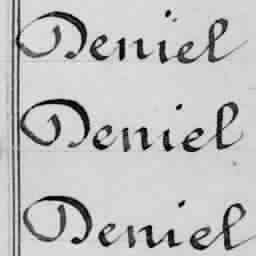 Deniel
Deniel
Deniel